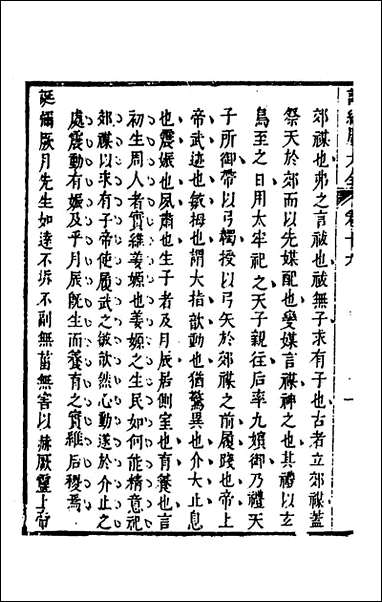 大全 卷十九 一
郊禖也弗之言祓也祓無子求有子也古者立郊禖蓋
祭天於郊而以先媒配也變媒言禖神之也其禮以玄
鳥至之日用太牢祀之天子親往后率九嬪御乃禮天
子所御帶以弓韣授以弓矢於郊禖之前履踐也帝上
帝武迹也敏拇也謂大指歆動也猶驚異也介大止息
也震娠也夙肅也生子者及月辰居側室也育養也言
初生周人者實維姜嫄也姜嫄之生民如何能精意祀
郊禖以求有子帝使履武之敏歆然心動遂於介止之
處震動有娠及乎月辰既生而養育之實維后稷焉
誕彌厥月先生如達不坼不副無菑無害以赫厥靈上帝